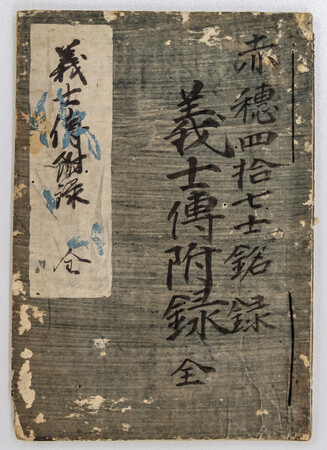 赤穂四拾七士銘録
義士傳附録 全
義士傳附録 全